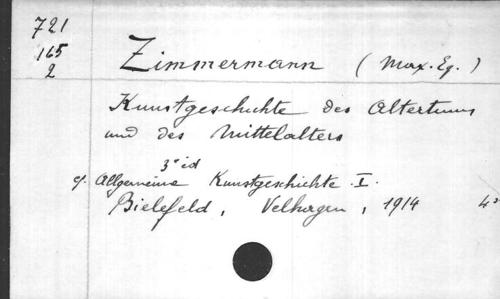 721
165
2
Zimmermann (Max. Eg.)
Kunstgeschichte des Altertums
und des Mittelalters
3e éd
cf. Allgemeine Kunstgeschichte I.
Bielefeld, Velhagen, 1914 4°